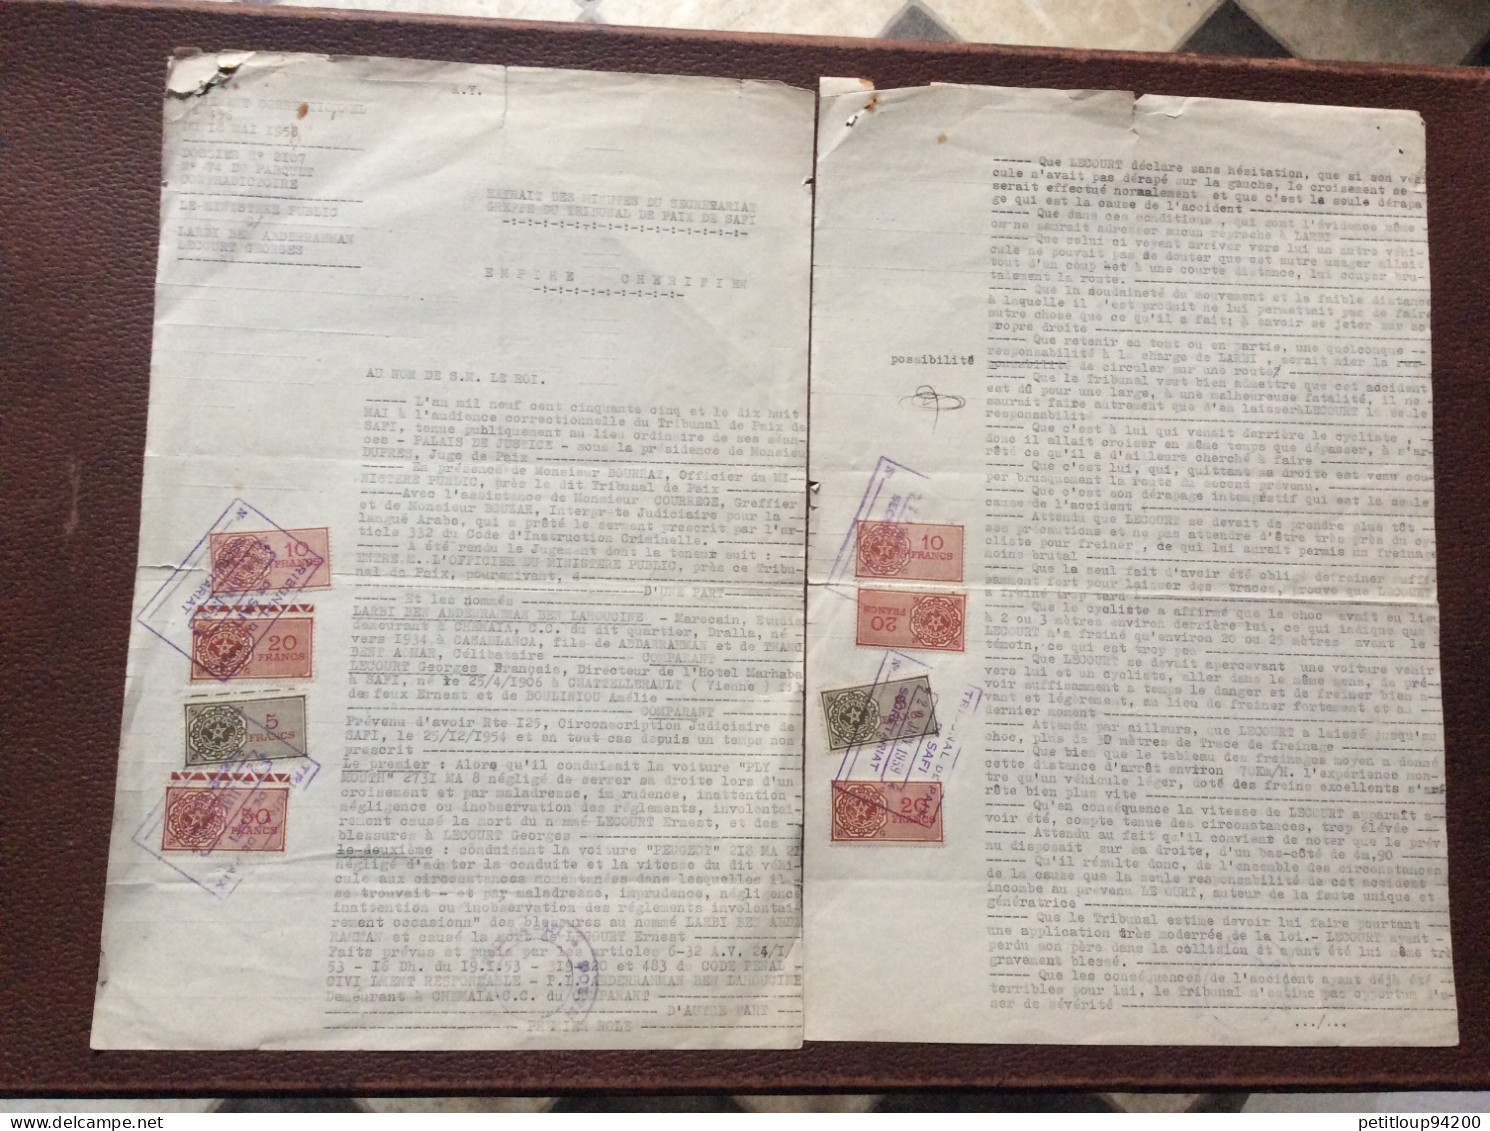 A.Y.
CORRECTIONNEL
DU 18 MAI 1955
DOSSIER N° 2107
N° 74 DU PARQUET
CONTRADICTOIRE
LE MINISTERE PUBLIC
LARBI BEN ABDERRAHMAN
LECOURT GEORGES
EXTRAIT DES MINUTES DU SECRETARIAT
GREFFE DU TRIBUNAL DE PAIX DE SAFI
EMPIRE CHERIFIEN
AU NOM DE S.M. LE ROI.
----- L'an mil neuf cent cinquante cinq et le dix huit
MAI à l'audience correctionnelle du Tribunal de Paix de
SAFI, tenue publiquement au lieu ordinaire de ses séan-
ces - PALAIS DE JUSTICE - sous la présidence de Monsieur
DUPRES, Juge de Paix
----- En présence de Monsieur BOURRAT, Officier du MI-
NISTERE PUBLIC, près le dit Tribunal de Paix
-----Avec l'assistance de Monsieur COURREGE, Greffier
et de Monsieur BOUZAR, Interprète Judiciaire pour la
langue Arabe, qui a prêté le serment prescrit par l'ar-
ticle 332 du Code d'Instruction Criminelle.
----- A été rendu le Jugement dont la teneur suit :
ENTRE M. L'OFFICIER DU MINISTERE PUBLIC, près ce Tribu-
nal de Paix, poursuivant,
D'UNE PART
----- Et les nommés
LARBI BEN ABDERRAHMAN BEN LAROUCINE - Marocain, Etudia
demeurant à CHEMAIA, C.C. du dit quartier, Dralla, né
vers 1934 à CASABLANCA, fils de ABDARRAHMAN et de THAMO
BENT AOMAR, Célibataire COMPARANT
LECOURT Georges Français, Directeur de l'Hotel Marhaba
à SAFI, né le 25/4/1906 à CHATTELLERAULT ( Vienne ) fil
des feux Ernest et de BOULINIOU Amélie
COMPARANT
Prévenu d'avoir Rte 125, Circonscription Judiciaire de
SAFI, le 25/12/1954 et en tout cas depuis un temps non
prescrit
Le premier : Alors qu'il conduisait la voiture "PLY
MOUTH" 2731 MA 8 négligé de serrer sa droite lors d'un
croisement et par maladresse, imprudence, inattention
négligence ou inobservation des réglements, involontai-
rement causé la mort du nommé LECOURT Ernest, et des
blessures à LECOURT Georges
le deuxième : conduisant la voiture "PEUGEOT" 218 MA 21
négligé d'adapter la conduite et la vitesse du dit véhi-
cule aux circonstances momentanées dans lesquelles il
se trouvait - et par maladresse, imprudence, négligence
inattention ou inobservation des réglements involontai-
rement occasionn" des blessures au nommé LARBI BEN ABDE
RAHMAN et causé la mort de LECOURT Ernest
Faits prévus et punis par les articles 6-32 A.V. 24/1
53 - 16 Dh. du 19.1.53 - 319-320 et 483 du CODE PENAL -
CIVILEMENT RESPONSABLE - P.L. ABDERRAHMAN BEN LAROUCINE
Demeurant à CHEMAIA C.C. du COMPARANT
D'AUTRE PART
PREMIER ROLE
10
FRANCS
20
FRANCS
5
FRANCS
50
FRANCS
----- Que LECOURT déclare sans hésitation, que si son véhi
cule n'avait pas dérapé sur la gauche, le croisement se
serait effectué normalement et que c'est la seule dérapa
ge qui est la cause de l'accident
----- Que dans ces conditions, qui sont l'évidence même
on ne saurait adresser aucun reproche à LARBI
----- Que celui ci voyant arriver vers lui un autre véhi-
cule ne pouvait pas se douter que cet autre usager allait
tout d'un coup et à une courte distance, lui couper bru-
talement la route.
----- Que la soudaineté du mouvement et la faible distance
à laquelle il s'est produit ne lui permettait pas de faire
autre chose que ce qu'il a fait; à savoir se jeter sur sa
propre droite
----- Que retenir en tout ou en partie, une quelconque
responsabilité à la charge de LARBI, serait nier la res-
ponsabilité de circuler sur une route/
possibilité
----- Que le Tribunal veut bien admettre que cet accident
est dû pour une large, à une malheureuse fatalité, il ne
saurait faire autrement que d'en laisser à LECOURT la seule
responsabilité
----- Que c'est à lui qui venait derrière le cycliste,
donc il allait croiser en même temps que dépasser, à s'ar-
rêté ce qu'il a d'ailleurs cherché à faire
----- Que c'est lui, qui, quittant sa droite est venu cou-
per brusquement la route du second prévenu.
----- Que c'est son dérapage intempestif qui est la seule
cause de l'accident
----- Attendu que LECOURT se devait de prendre plus tôt
ses précautions et ne pas attendre d'être très près du cy-
cliste pour freiner, ce qui lui aurait permis un freinage
moins brutal
----- Que la seul fait d'avoir été obligé defreiner suffi-
samment fort pour laisser des traces, prouve que LECOURT
a freiné trop tard
----- Que le cycliste a affirmé que le choc avait eu lieu
à 2 ou 3 mètres environ derrière lui, ce qui indique que
LECOURT n'a freiné qu'environ 20 ou 25 mètres avant le
témoin, ce qui est trop peu
----- Que LECOURT se devait apercevant une voiture venir
vers lui et un cycliste, aller dans le même sens, de pré-
voir suffisamment a temps le danger et de freiner bien
avant et légèrement, au lieu de freiner fortement et au
dernier moment
----- Attendu par ailleurs, que LECOURT a laissé jusqu'au
choc, plus de 30 mètres de Trace de freinage
----- Que bien que le tableau des freinages moyen a donné
cette distance d'arrêt environ 70Km/H. l'expérience mon-
tre qu'un véhicule léger, doté des freins excellents s'ar
rête bien plus vite
----- Qu'en conséquence la vitesse de LECOURT apparaît a-
voir été, compte tenue des circonstances, trop élévée
----- Attendu au fait qu'il convient de noter que le prév
au disposait sur sa droite, d'un bas-côté de 4m,90
----- Qu'il résulte donc, de l'ensemble des circonstances
de la cause que la seule responsabilité de cet accident
incombe au prévenu LECOURT, auteur de la faute unique et
génératrice
----- Que le Tribunal estime devoir lui faire pourtant
une application très moderrée de la loi.- LECOURT ayant
perdu son père dans la collision et ayant été lui même tr
gravement blessé.
----- Que les conséquences de l'accident ayant déjà été
terribles pour lui, le Tribunal n'estime pas opportun d'u
ser de sévérité
.../...
10
FRANCS
20
FRANCS
20
FRANCS
petitloup94200